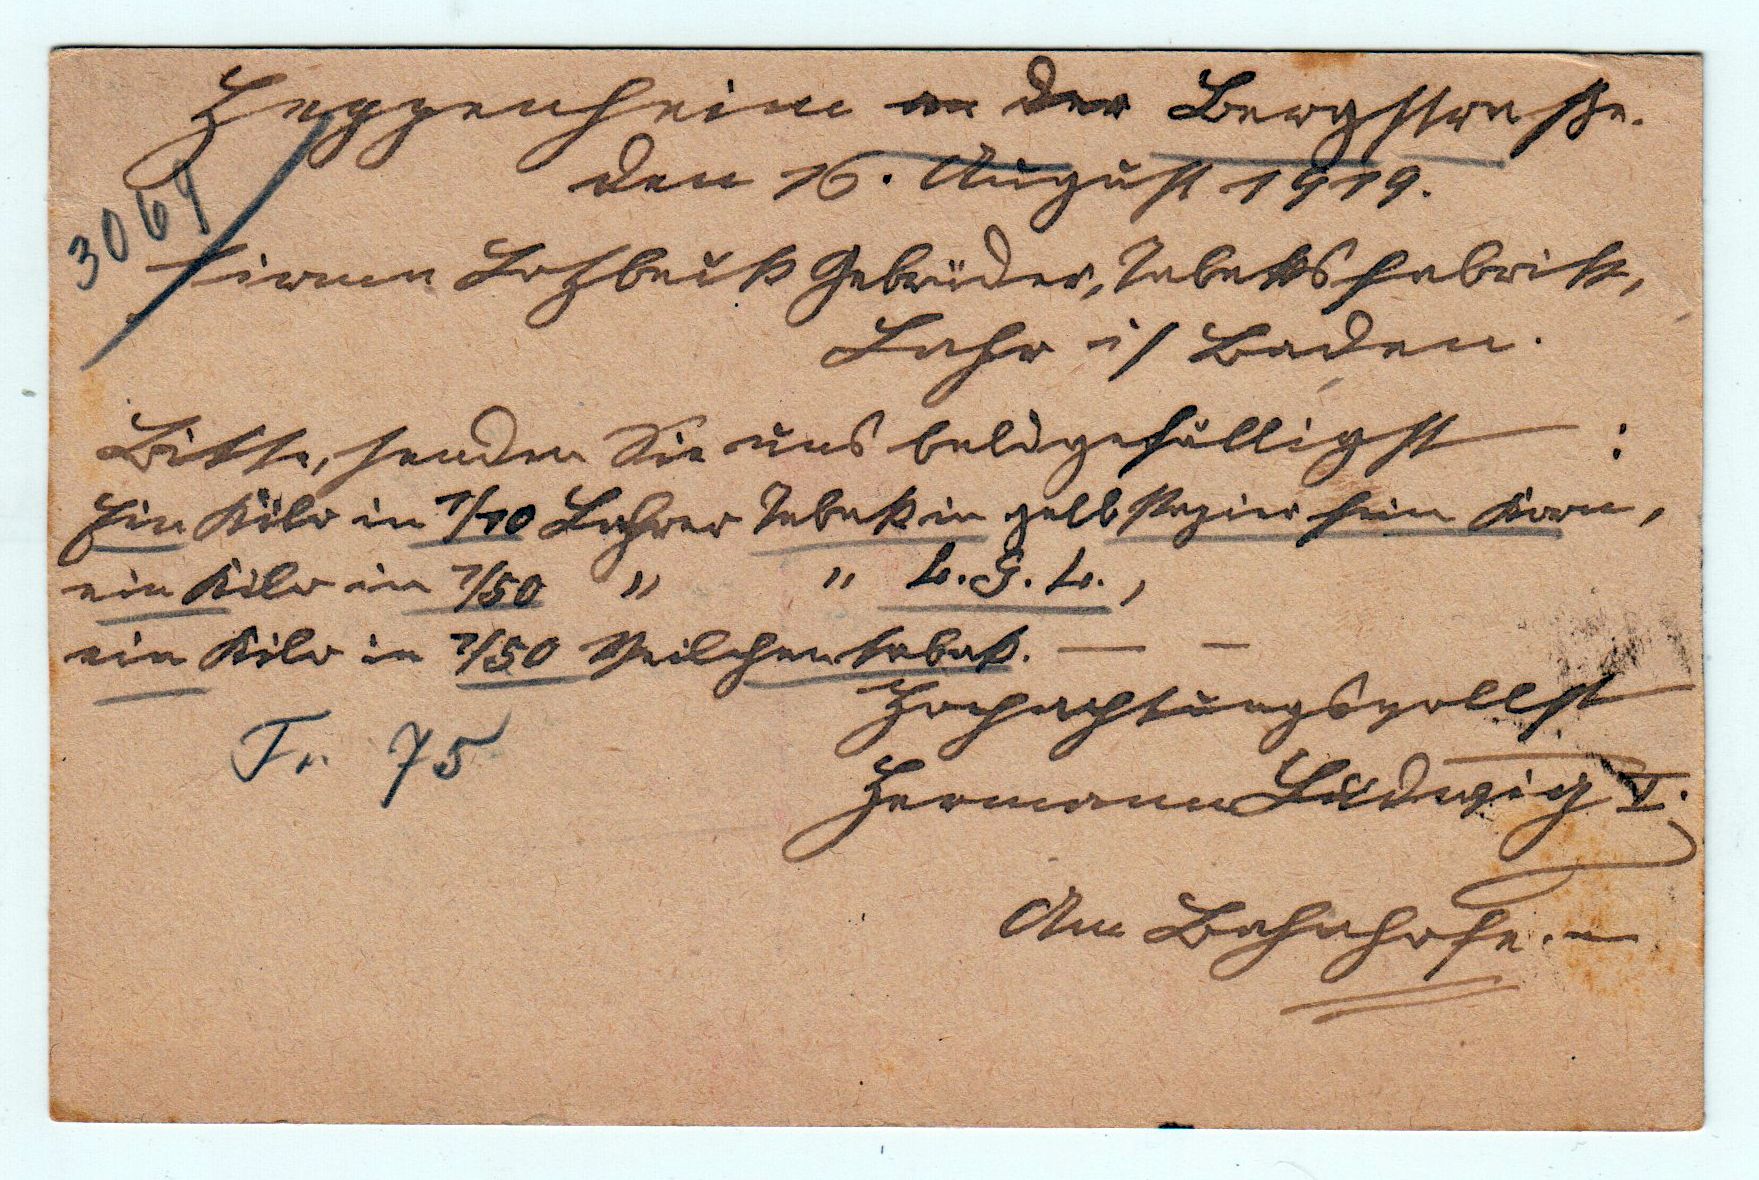 Heppenheim an der Bergstraße.
den 16. August 1919.
3064
Firma Lotzbeck Gebrüder, Tabaksfabrik,
Lahr i/ Baden.
Bitte, senden Sie uns baldgefälligst :
Ein Kilo in 1/10 Lahrer Tabak in gelb Papier fein Korn,
ein Kilo in 1/50 " " L. G. L.,
ein Kilo in 1/50 Veilchentabak. — –
Hochachtungsvollst
Fr. 75
Hermann Ludwig V.
Am Bahnhofe. –